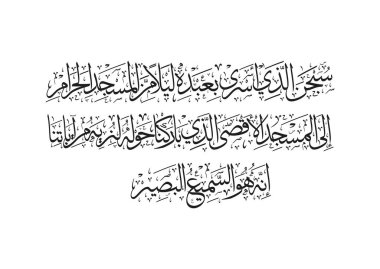 سبحن الذي أسرى بعبده ليلا من المسجد الحرام
إلى المسجد الأقصى الذي باركنا حوله لنريه من آياتنا
إنه هو السميع البصير